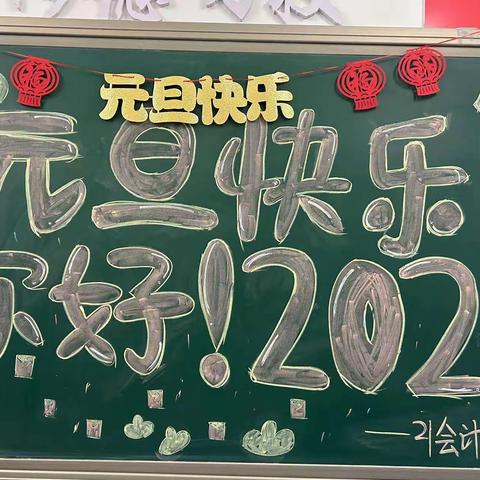 元旦快乐
元旦快乐
你好!202
—21会计